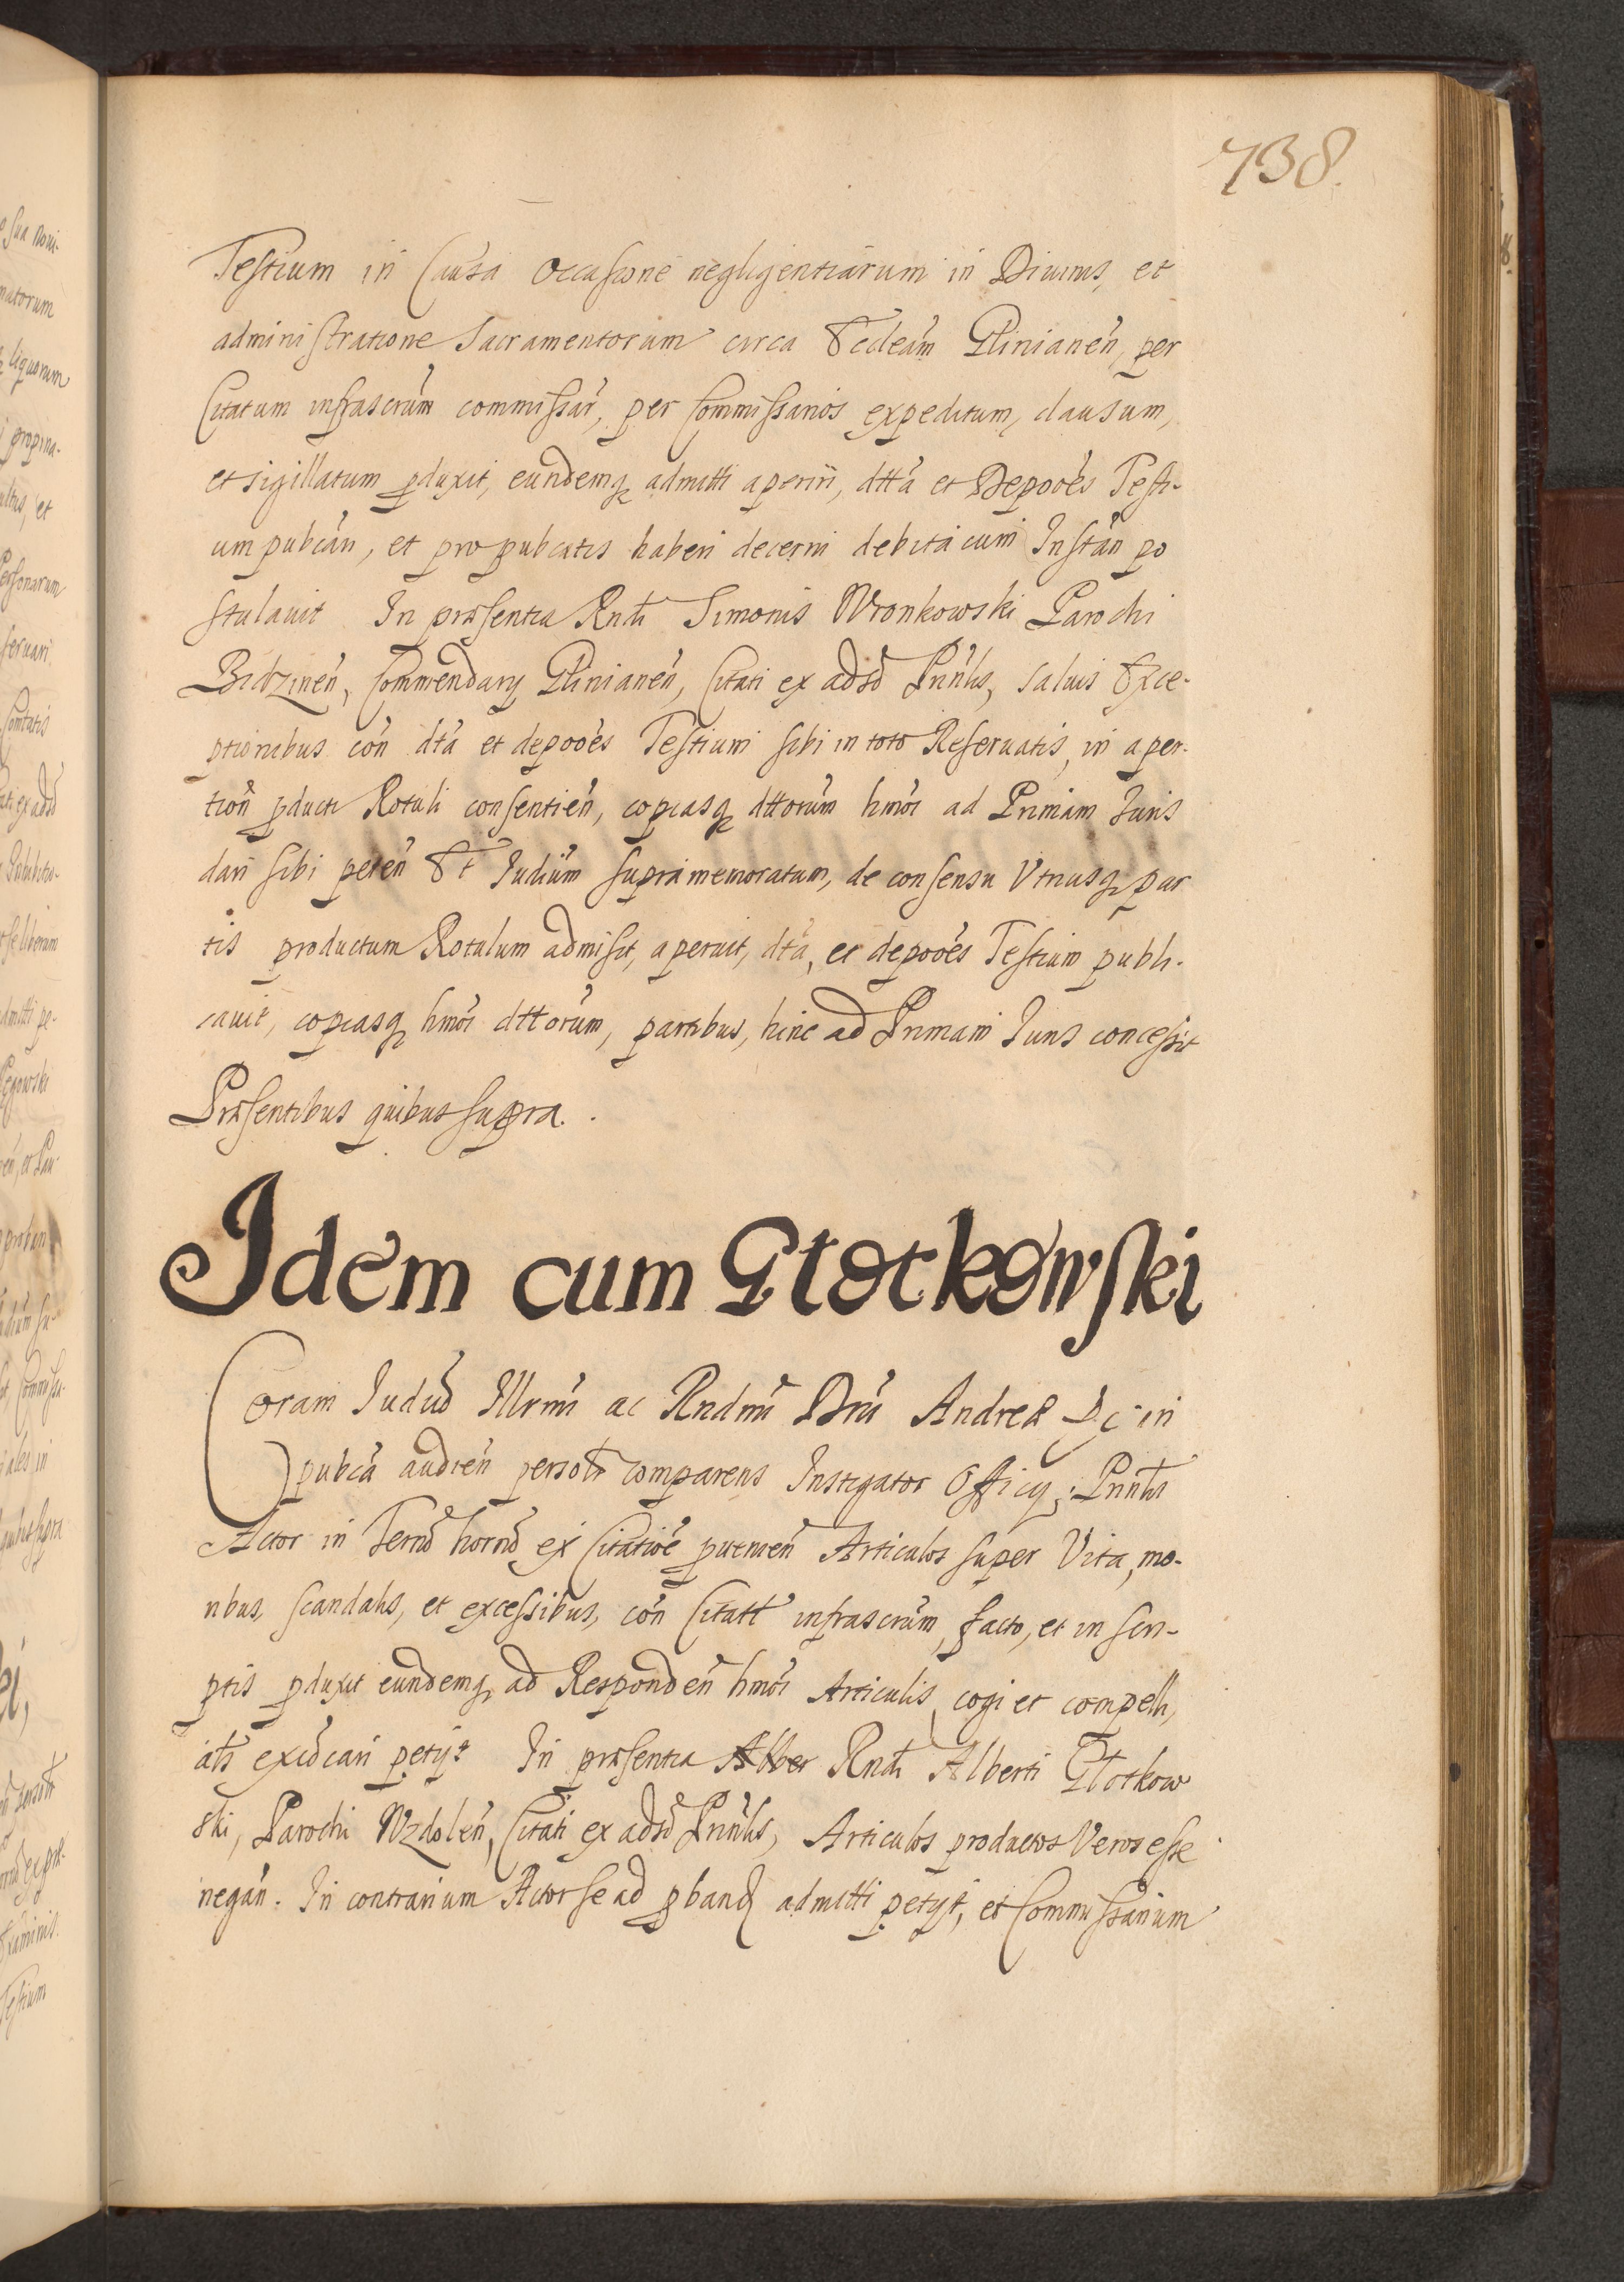 738.
Testium in Causa Occasione negligentiarum in Diuinis, et
administratione Sacramentorum circa Eccleãm Glinianeñ, per
Citatum infrascrũm commissar̃, per Commissarios expeditum, clausum,
et sigillatum pduxit, eundemq admitti aperiri, dtta et Depoões Testi-
um pubcãn, et pro pubcatis haberi decerni debita cum Instãn po
stulauit In præsentia Rndi Simonis Wronkowski Parochi
Bidzineñ, Commendarij Glinianeñ, Citati ex adső Prinlis, saluis Exce-
ptionibus coñ dta et depoões Testium sibi in toto Reseruatis, in aper-
tioñ pducti Rotuli consentieñ, copiasq dttorum hmoi ad Primam Juris
dari sibi peteñ Et Judiũm supramemoratum, de consensu Vtriusq par
tis productum Rotulum admisit, aperuit, dta, et depoões Testium publi-
cauit, copiasq hmoi dttorum, partibus, hinc ad Primam Juris concessit
Præsentibus quibus supra.
Idem cum Głotkowski
Coram Judiő Illrmi ac Rndmi Dñi Andreæ &c in
pubca audieñ persoltr comparens Instigator Officij, Prinlis
Actor in Termő hornő ex Citatiőe pueñien Articulos super Vita, mo-
ribus, scandalis, et excessibus, coñ Citatt infrascrũm, facto, et in scri-
ptis pduxit eundemq ad Respondeñ hmoi Articulis cogi et compelli,
als exc̃dcari petijt In præsentia Rndi Alberti Głotkow
ski, Parochi Wzdoleñ, Citati ex adső Prinlis, Articulos productos Veros esse
negañ. In contrarium Actor se ad pband admitti petijt, et Commissarium